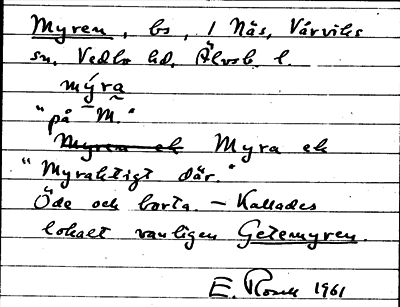 Myren, bs, 1 Näs, Vårviks
sn, Vedbo hd, Älvsb l.
mýra
"på M̃."
Myren ek Myra ek
"Myraktigt där."
Öde och borta. — Kallades
lokalt vanligen Getemyren.
E. Rosell 1961